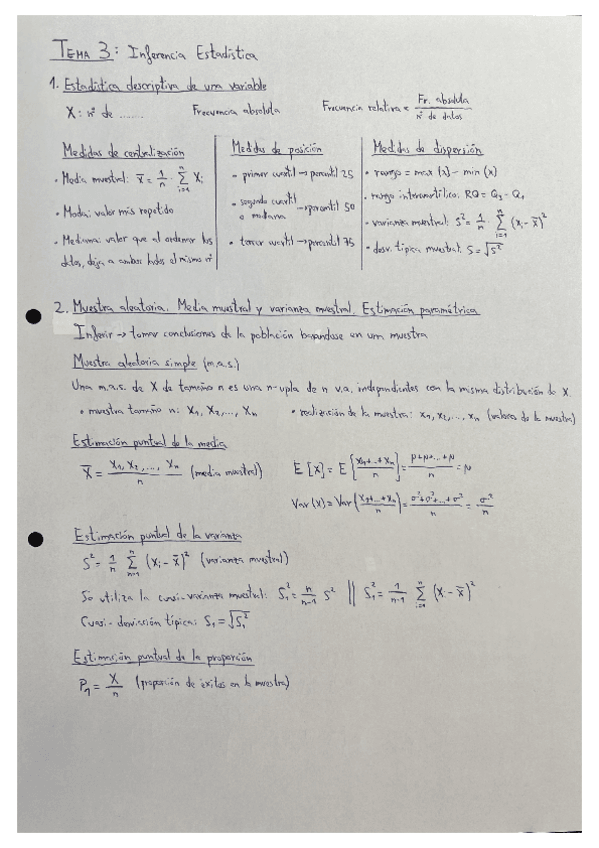 TEMA 3: Inferencia Estadística
1. Estadística descriptiva de una variable
X: nº de ....... Frecuencia absoluta Frecuencia relativa = Fr. absoluta / nº de datos
Medidas de centralización
• Media muestral: x̄ = 1/n · Σ_{i=1}^{n} Xi
• Moda: valor más repetido
• Mediana: valor que al ordenar los
datos, deja a ambos lados el mismo nº
Medidas de posición
- primer cuartil → percentil 25
- segundo cuartil o mediana → percentil 50
• tercer cuartil → percentil 75
Medidas de dispersión
• rango = max (x) - min (x)
• rango intercuartílico: RQ = Q3 - Q1
• varianza muestral: S² = 1/n · Σ_{i=1}^{n} (xi - x̄)²
• desv. típica muestral: S = √S²
2. Muestra aleatoria. Media muestral y varianza muestral. Estimación paramétrica
Inferir → tomar conclusiones de la población basándose en una muestra
Muestra aleatoria simple (m.a.s.)
Una m.a.s. de X de tamaño n es una n-upla de n v.a. independientes con la misma distribución de X.
• muestra tamaño n: X1, X2, ..., Xn • realización de la muestra: x1, x2, ..., xn (valores de la muestra)
Estimación puntual de la media
X̄ = X1, X2, ..., Xn / n (media muestral) E [X] = E [X1+...+Xn / n] = μ+μ+...+μ / n = μ
Var (X) = Var (X1+...+Xn / n) = σ²+σ²+...+σ² / n = σ² / n
Estimación puntual de la varianza
S² = 1/n Σ_{n=1}^{n} (Xi - X̄)² (varianza muestral)
Se utiliza la cuasi-varianza muestral: S1² = n/n-1 S² || S1² = 1/n-1 Σ_{i=1}^{n} (Xi - X̄)²
Cuasi-desviación típica: S1 = √S1²
Estimación puntual de la proporción
P1 = X/n (proporción de éxitos en la muestra)